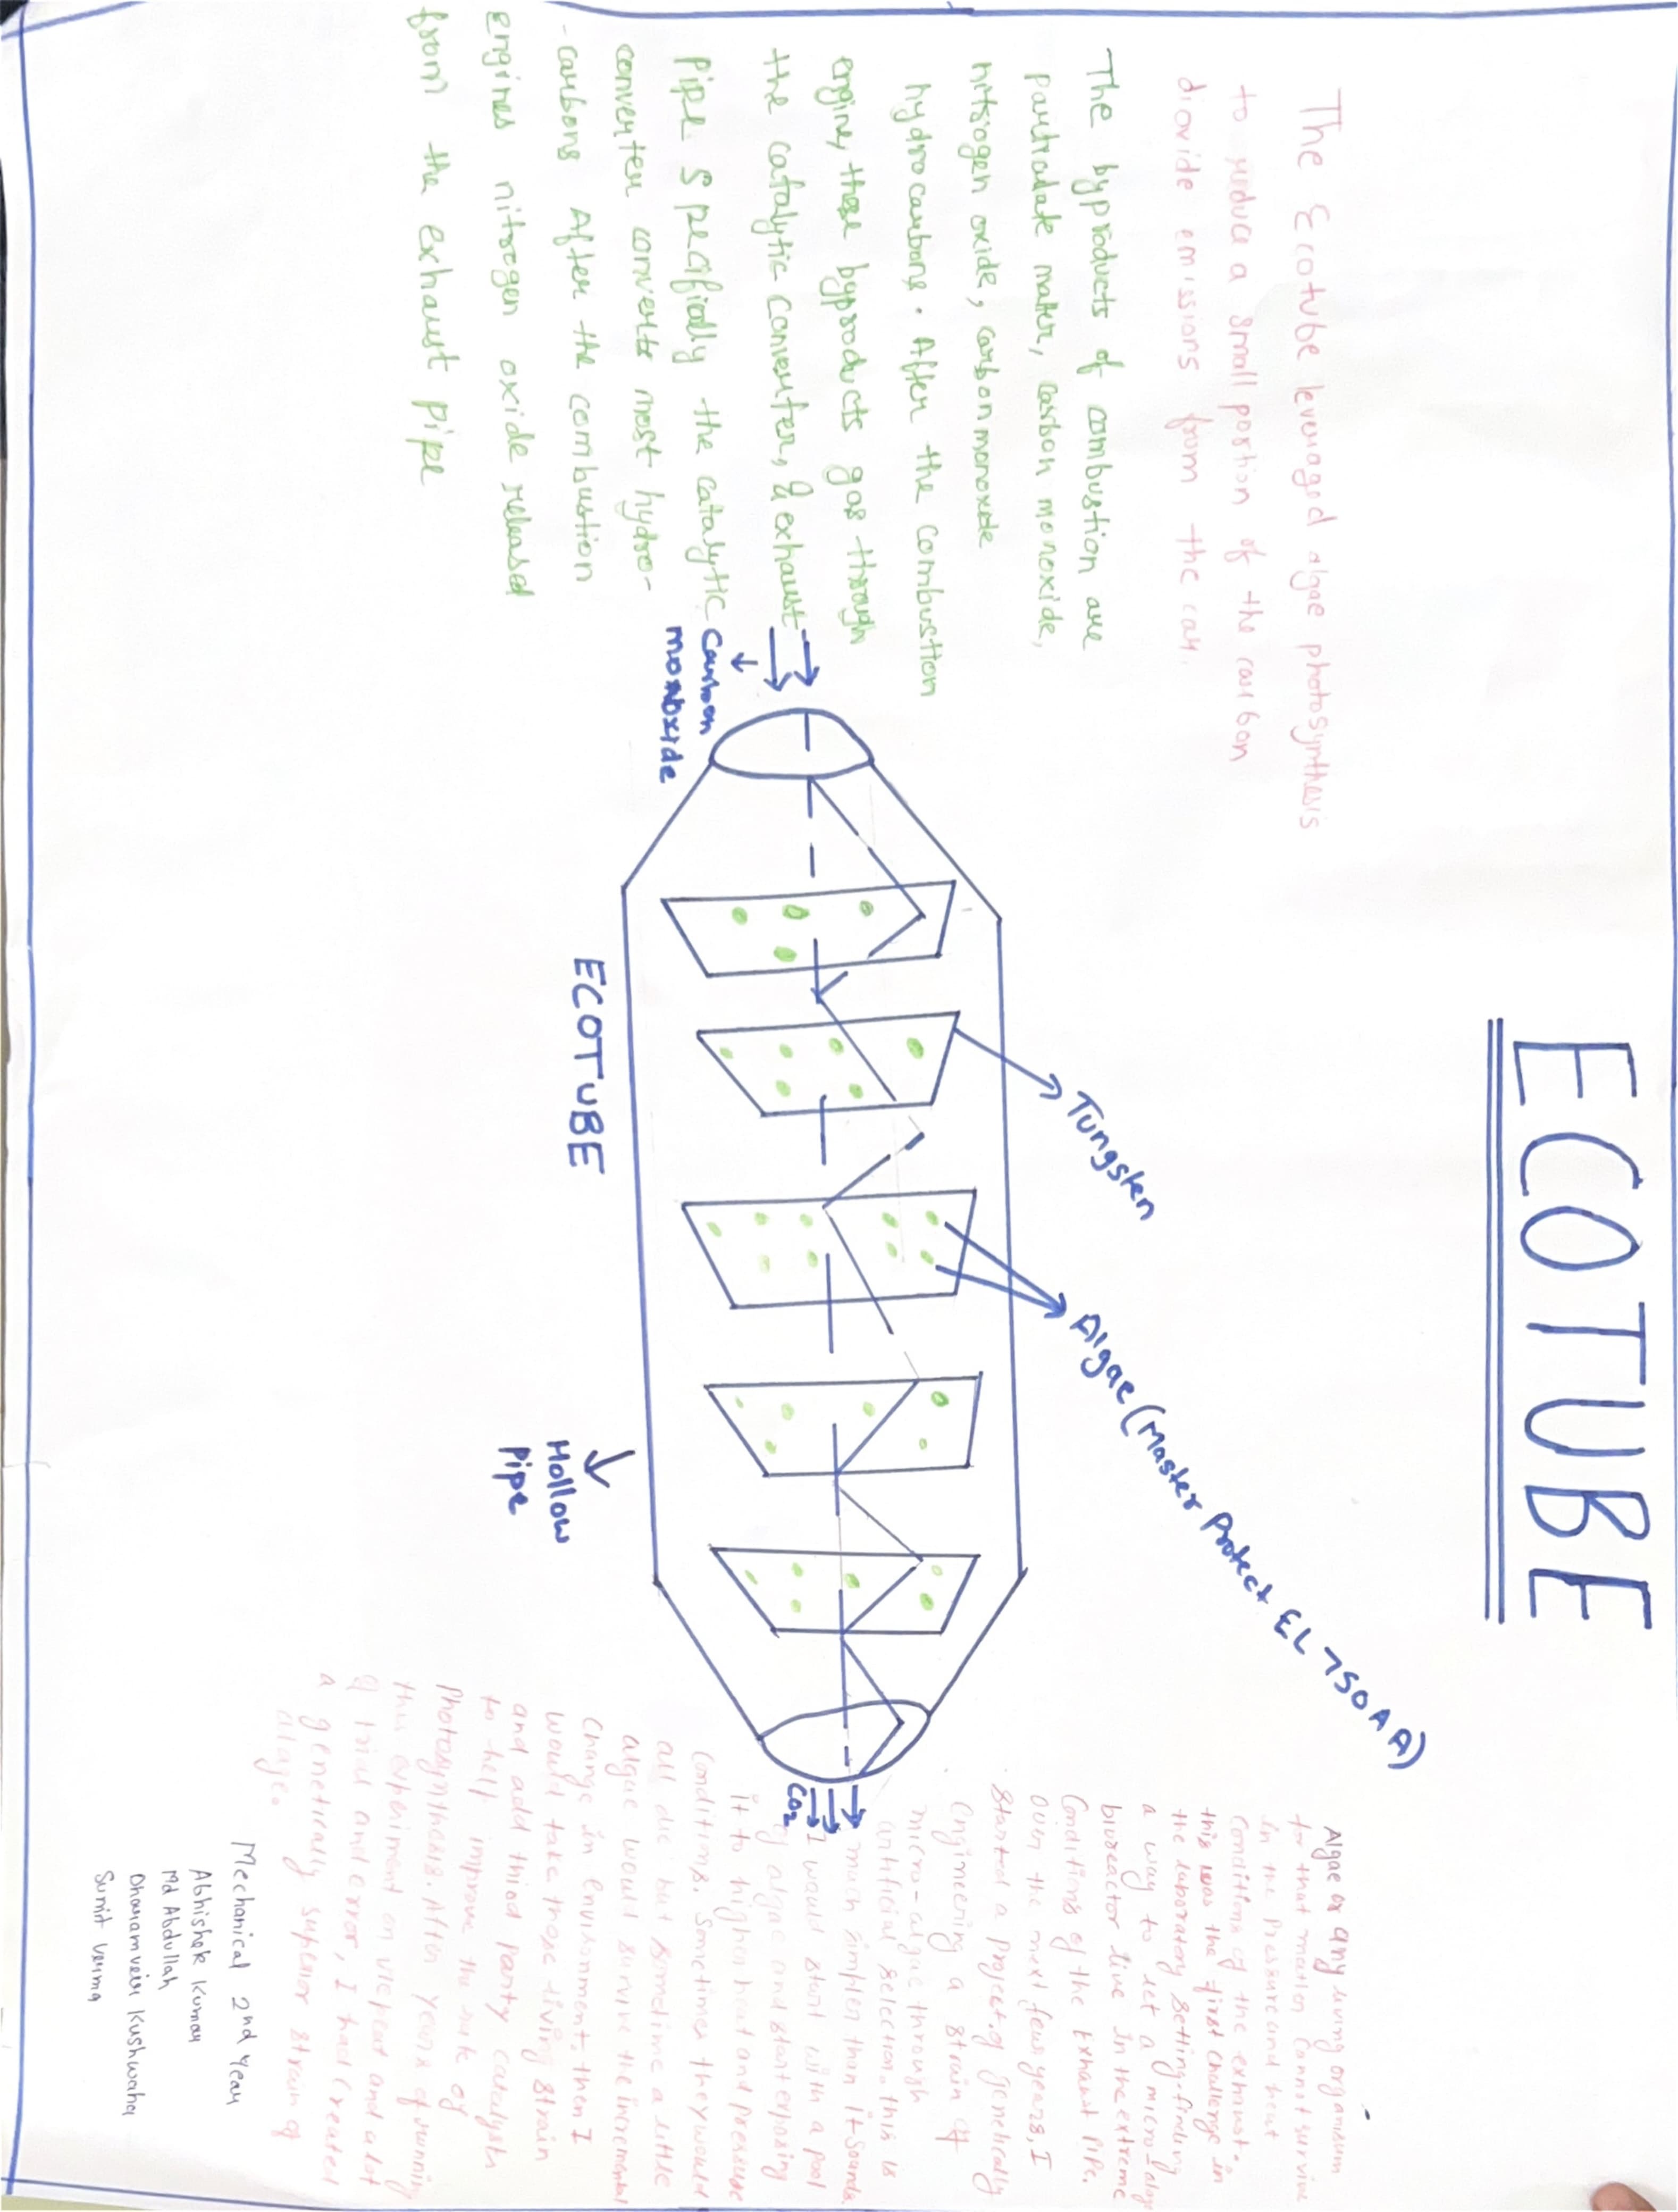 ECOTUBE
The Ecotube leveraged algae photosynthesis
to reduce a small portion of the carbon
dioxide emissions from the car.
The byproducts of combustion are
particulate matter, carbon monoxide,
nitrogen oxide, carbon monoxide
hydrocarbons. After the combustion
engine, these byproducts gas through
the catalytic converter, & exhaust
pipe specifically the catalytic
converter converts most hydro-
-carbons After the combustion
engines nitrogen oxide released
from the exhaust pipe
Carbon
monoxide
Tungsten
Algae (Master Protect EL 750AA)
ECOTUBE
Hollow
Pipe
CO2
Algae or any living organism
for that matter cannit survive
in the pressure and heat
Conditions of the exhaust.
this was the first challenge in
the laboratory setting-finding
a way to let a micro-alge
bioreactor live in the extreme
Conditions of the exhaust pipe.
over the next few years, I
started a project of genetically
Engineering a strain of
micro-algae through
artificial selection. this is
much simpler than it sounds
I would start with a pool
of algae and start exposing
it to higher heat and pressure
conditions. Sometimes they would
all die but sometime a little
algae would survive the incremental
Change in environment. then I
would take those living strain
and add third party catalysts
to help improve the rate of
Photosynthesis. After years of running
this experiment on repeat and a lot
of trial and error, I had created
a genetically superior strain of
algae.
Mechanical 2nd year
Abhishek Kumar
Md Abdullah
Dharamveer Kushwaha
Sumit Verma